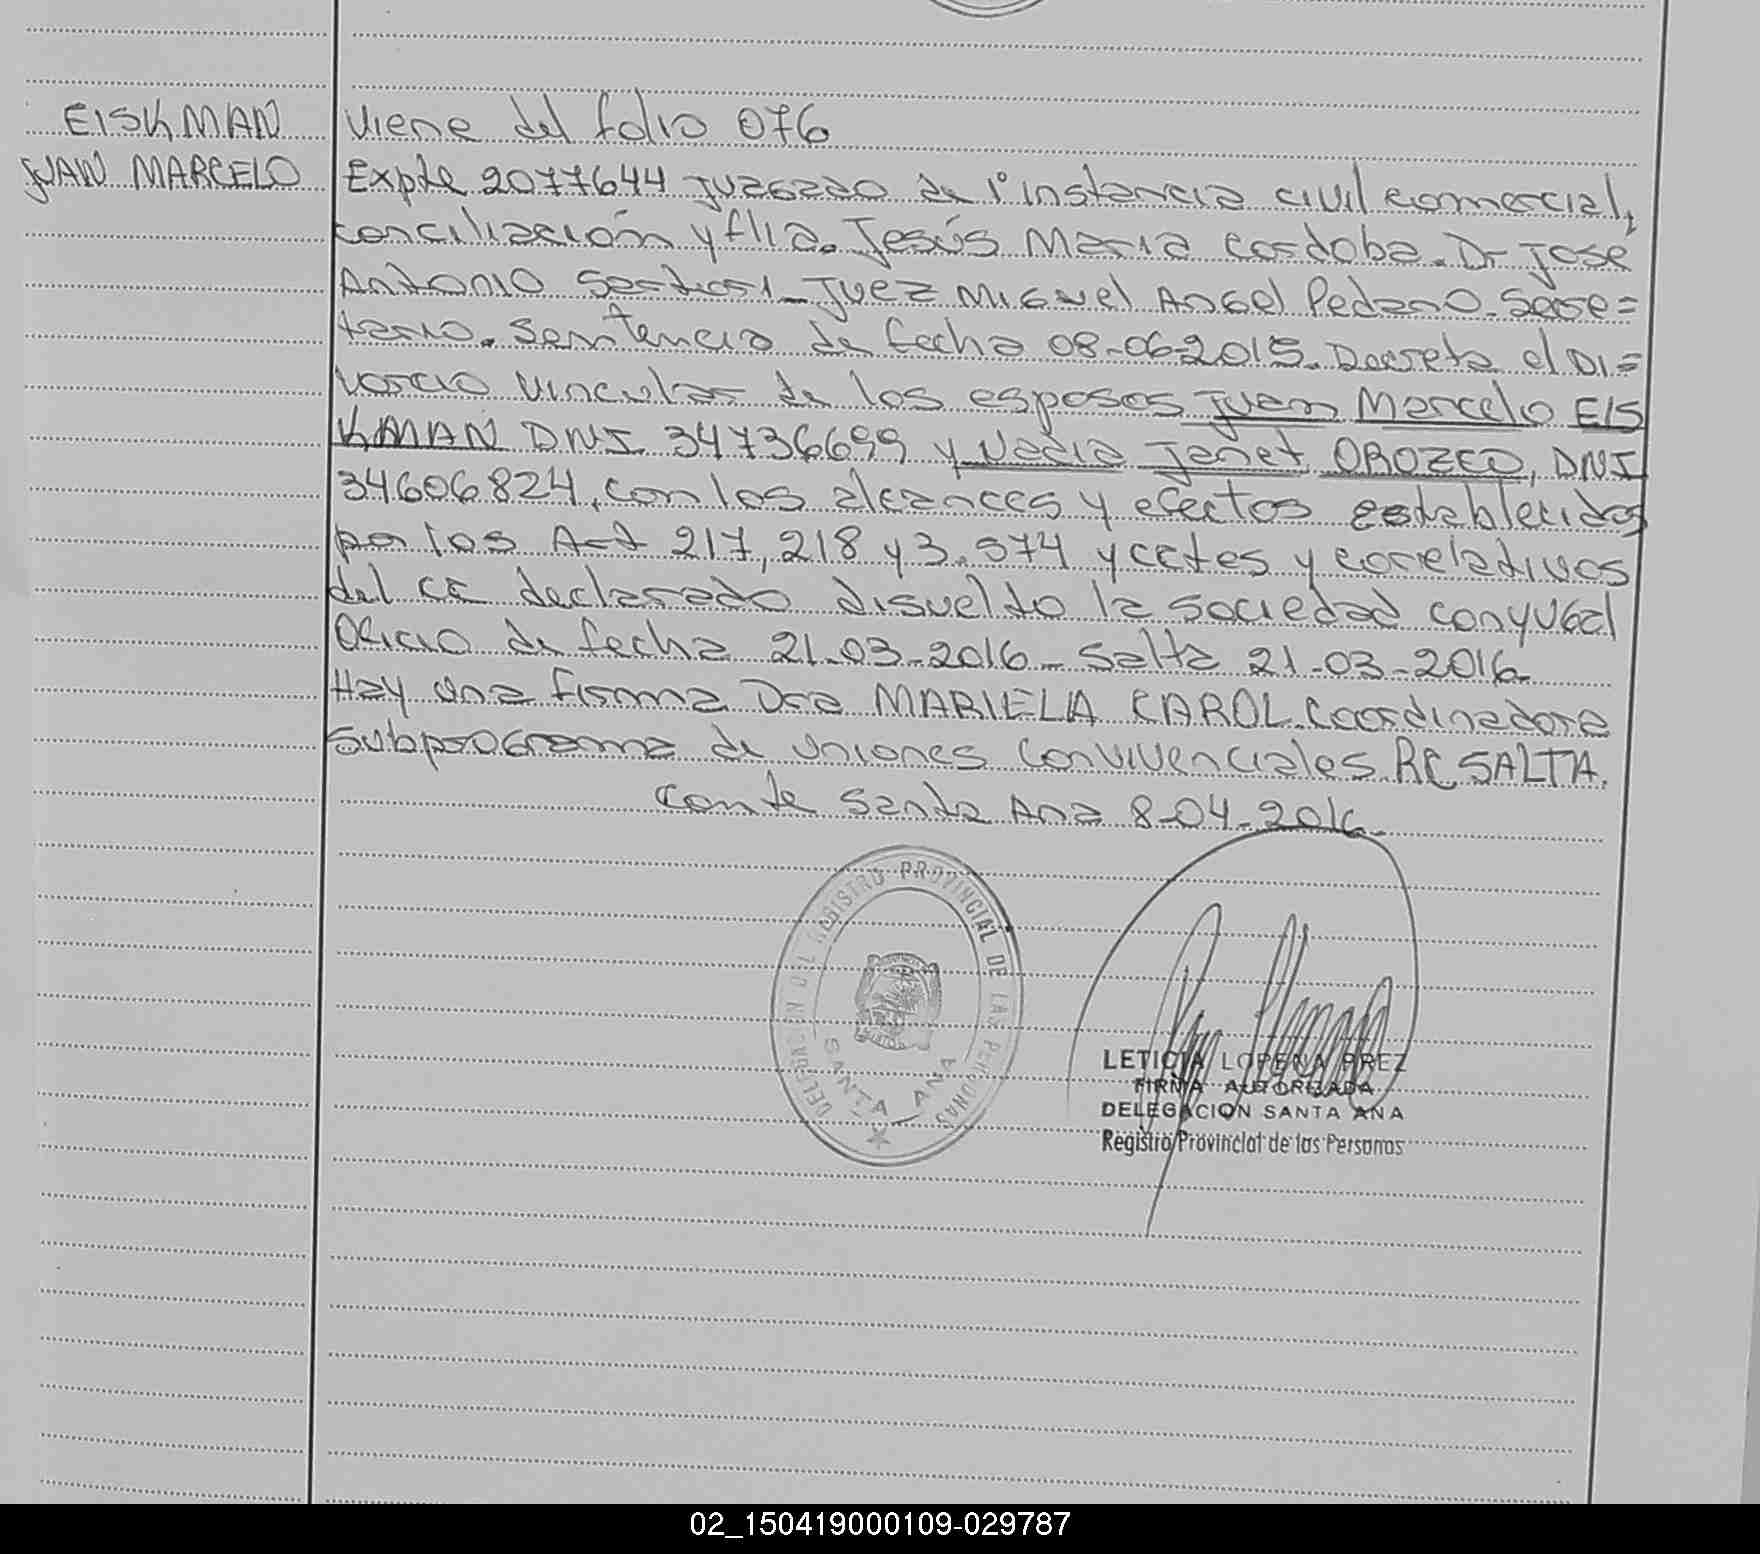 EISKMAN
JUAN MARCELO
Viene del folio 076
Expte 2077644 Juzgado de 1º instancia civil comercial,
conciliación y flia. Jesús Maria Cordoba. Dr José
Antonio Sartori - Juez Miguel Angel Pedano - Secre=
tario. Sentencia de fecha 08-06-2015. Decreta el Di=
vorcio vincular de los esposos Juan Marcelo EIS
KMAN DNI 34736699 y Nadia Janet OROZCO, DNI
34606824, con los alcances y efectos establecidos
por los Art 217, 218 y 3.574 y cctes y correlativos
del CC declarado disuelto la sociedad conyugal
Oficio de fecha 21-03-2016 - Salta 21-03-2016-
Hay una firma Dra MARIELA CAROL. Coordinadora
Subprograma de Uniones Convivenciales RC SALTA.
Conste Santa Ana 8-04-2016-
DELEGACION DEL REGISTRO PROVINCIAL DE LAS PERSONAS
SANTA ANA
LETICIA LORENA PREZ
FIRMA AUTORIZADA
DELEGACION SANTA ANA
Registro Provincial de las Personas
02_150419000109-029787